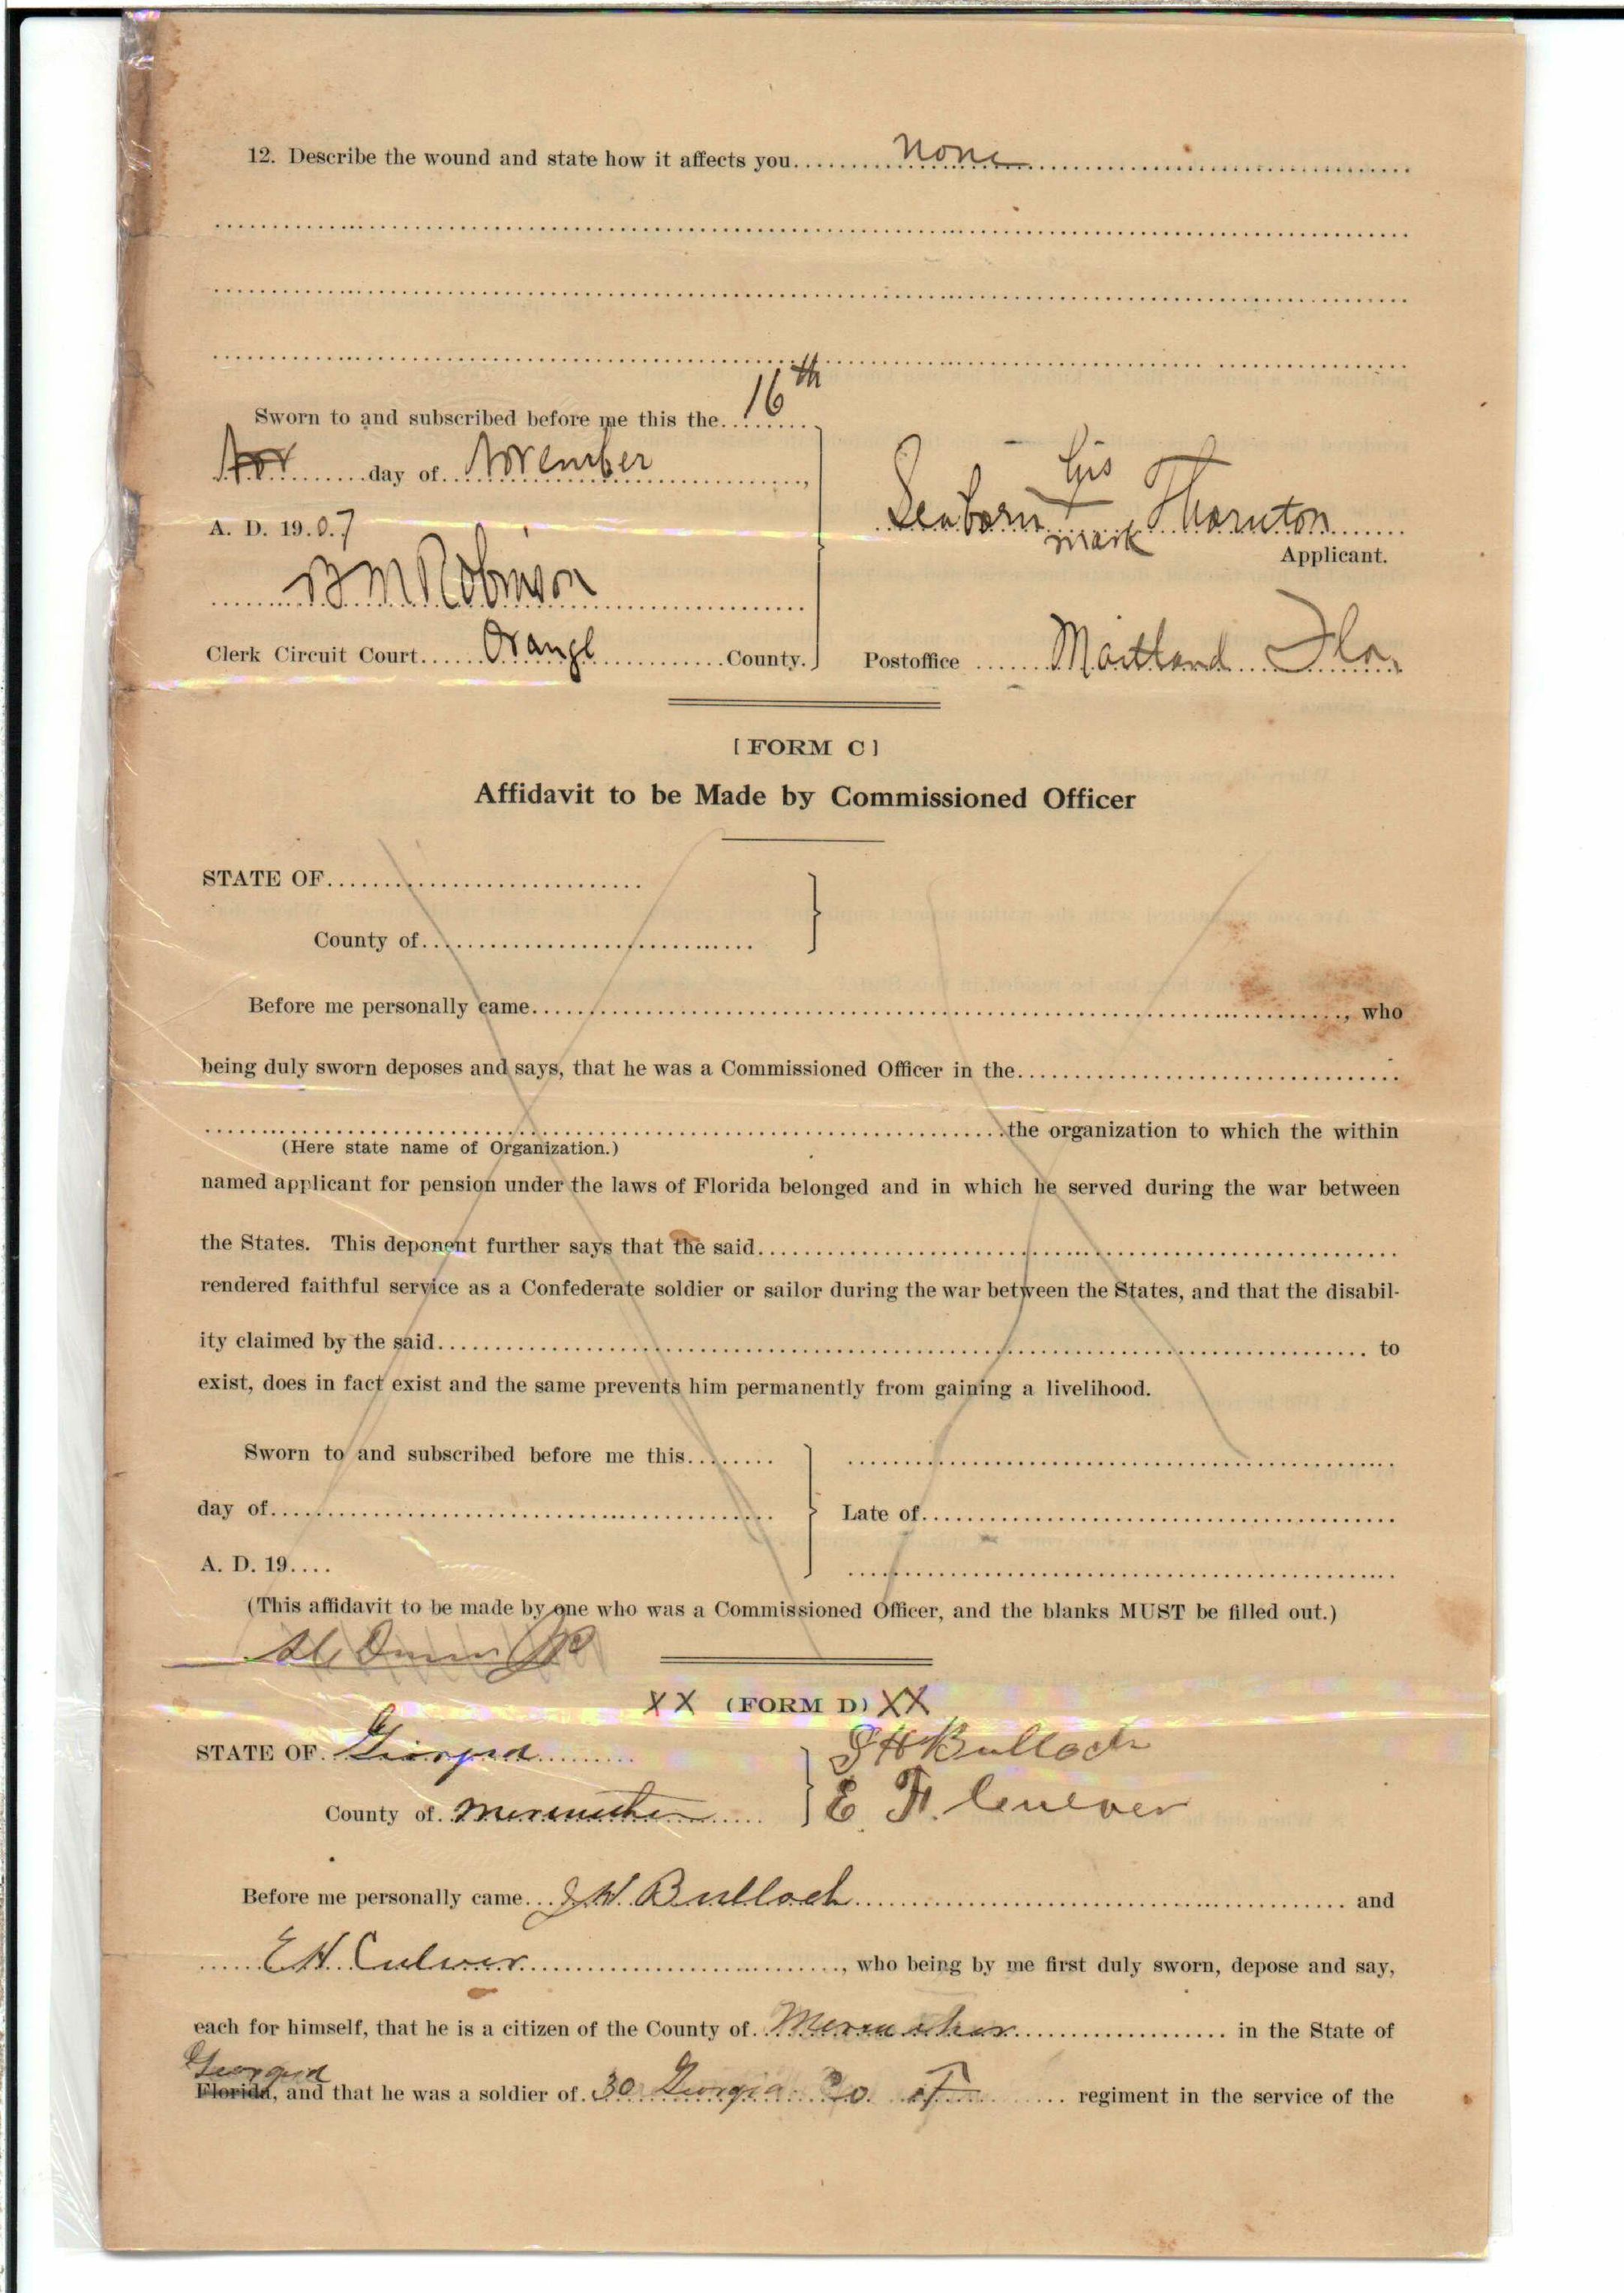 12. Describe the wound and state how it affects you........None
Sworn to and subscribed before me this the.16th
Nov day of November
A. D. 1907
his
Seaborn Thornton
mark
Applicant.
B M Robinson
Clerk Circuit Court Orange County.
Postoffice Maitland Fla.
[FORM C]
Affidavit to be Made by Commissioned Officer
STATE OF
County of
Before me personally came, who
being duly sworn deposes and says, that he was a Commissioned Officer in the
the organization to which the within
(Here state name of Organization.)
named applicant for pension under the laws of Florida belonged and in which he served during the war between
the States. This deponent further says that the said
rendered faithful service as a Confederate soldier or sailor during the war between the States, and that the disabil-
ity claimed by the said to
exist, does in fact exist and the same prevents him permanently from gaining a livelihood.
Sworn to and subscribed before me this
day of
Late of
A. D. 19....
(This affidavit to be made by one who was a Commissioned Officer, and the blanks MUST be filled out.)
XX (FORM D) XX
STATE OF Georgia
J H Bulloch
County of Meriwether
E. H. Culver
Before me personally came J H. Bulloch and
E H. Culver, who being by me first duly sworn, depose and say,
each for himself, that he is a citizen of the County of Meriwether in the State of
Georgia
Florida, and that he was a soldier of 30 Georgia Co. regiment in the service of the